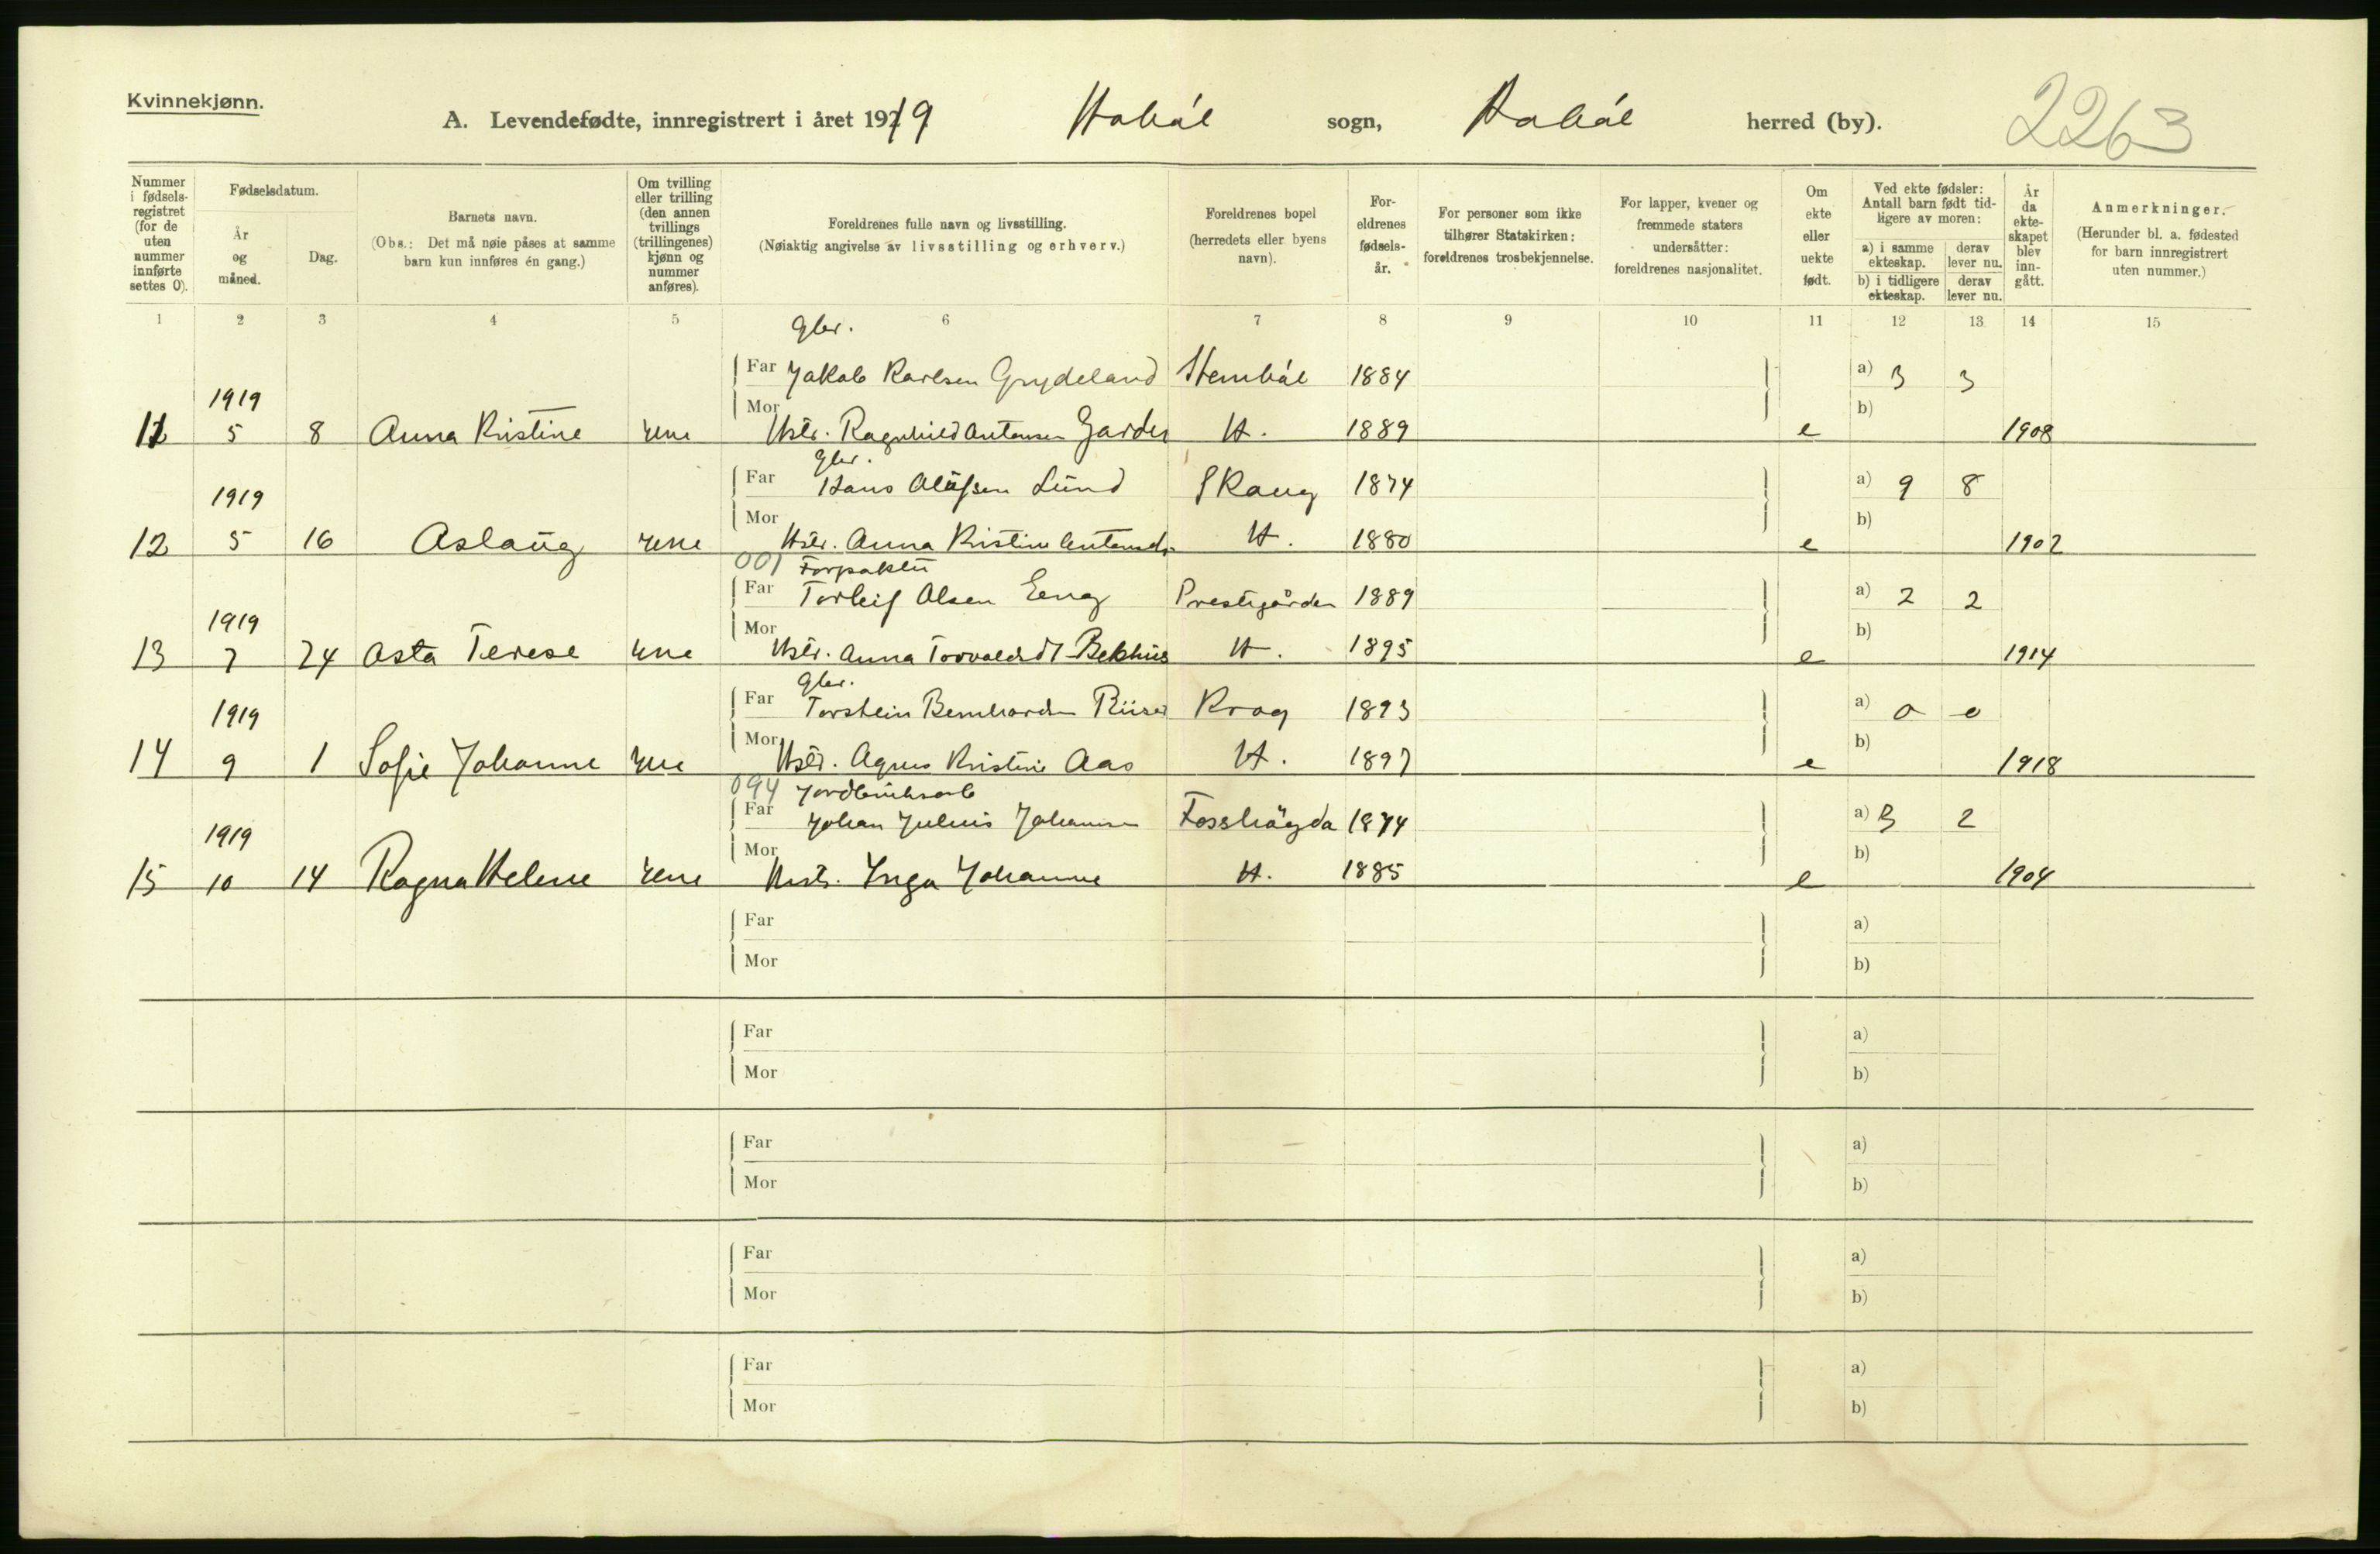 Kvinnekjønn.
A. Levendefødte, innregistrert i året 1919 Hobøl sogn, Hobøl herred (by). 2263
Nummer i fødsels-registret (for de uten nummer innførte settes 0).
Fødselsdatum.
År og måned.
Dag.
Barnets navn.
(Obs.: Det må nøie påses at samme barn kun innføres én gang.)
Om tvilling eller trilling (den annen tvillings (trillingenes) kjønn og nummer anføres).
Foreldrenes fulle navn og livsstilling.
(Nøiaktig angivelse av livsstilling og erhverv.)
Foreldrenes bopel (herredets eller byens navn).
For-eldrenes fødsels-år.
For personer som ikke tilhører Statskirken: foreldrenes trosbekjennelse.
For lapper, kvener og fremmede staters undersåtter: foreldrenes nasjonalitet.
Om ekte eller uekte født.
Ved ekte fødsler: Antall barn født tid-ligere av moren:
a) i samme ekteskap.
derav lever nu.
b) i tidligere ekteskap.
derav lever nu.
År da ekte-skapet blev inn-gått.
Anmerkninger.
(Herunder bl. a. fødested for barn innregistrert uten nummer.)
1 2 3 4 5 6 7 8 9 10 11 12 13 14 15
gbr.
Far Jakob Karlsen Grydeland Stenbøl 1884 a) 3 3
1919
Mor b)
11 5 8 Anna Kristine ene Hstr. Ragnhild Antonsen Garder H. 1889 e 1908
gbr.
Far Hans Olafsen Lund Skaug 1874 a) 9 8
1919
Mor b)
12 5 16 Aslaug ene Hstr. Anna Kristine Antonsdr H. 1880 e 1902
001 Forpakter
Far Torleif Olsen Eng Prestegården 1889 a) 2 2
1919
Mor b)
13 7 24 Asta Terese ene Hstr. Anna Torvaldsdt Bekhus H. 1895 e 1914
gbr.
Far Torstein Bernhardsen Riiser Krog 1893 a) 0 0
1919
Mor b)
14 9 1 Sofie Johanne ene Hstr. Agnes Kristine Aas H. 1897 e 1918
094 Jordbruksarb
Far Johan Julius Johansen Fosshøgda 1874 a) 3 2
1919
Mor b)
15 10 14 Ragna Helene ene Hustr. Inga Johanne H. 1885 e 1904
Far a)
Mor b)
Far a)
Mor b)
Far a)
Mor b)
Far a)
Mor b)
Far a)
Mor b)